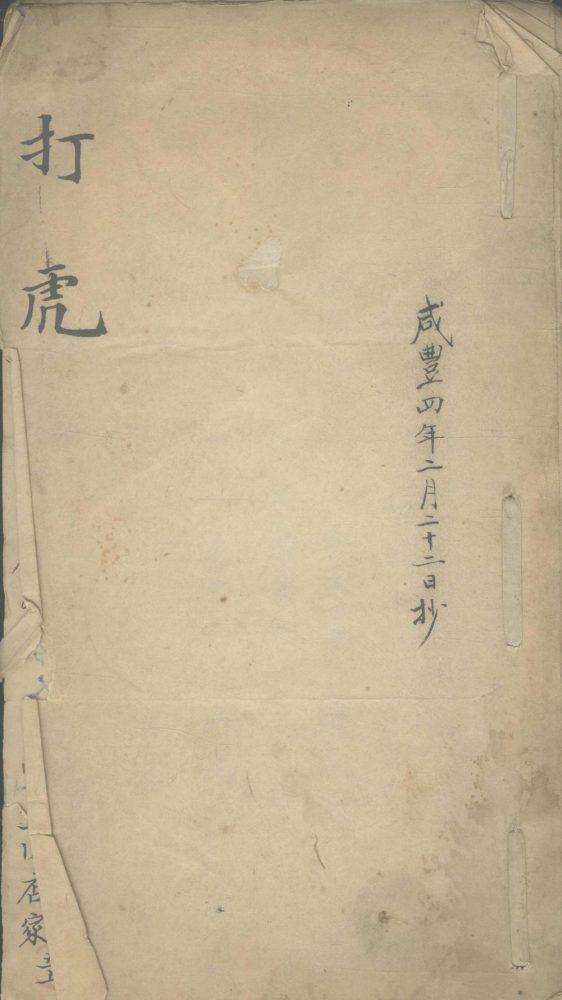 咸豐四年二月二十二日抄
打虎
店家